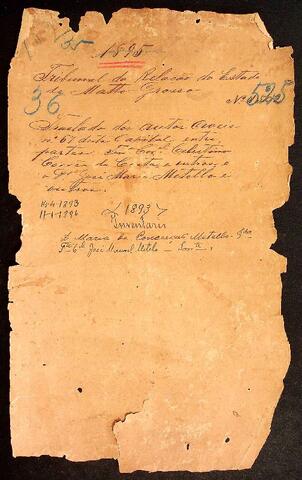 135
1895
Tribunal da Relação do Estado
de Matto Grosso
36
Nº 525
Traslado dos autos civeis
nº 67 desta Capital entre
partes Celestino
Corrêa da Costa e outros, e
José Maria Metello e
outros.
1893
1896
1893
Inventario
D. Maria da Conceição Metello
José Manoel Metello